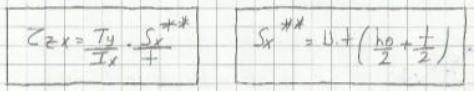 τzx = Ty/Ix · Sx**/t
Sx** = b·t (h0/2 + t/2)